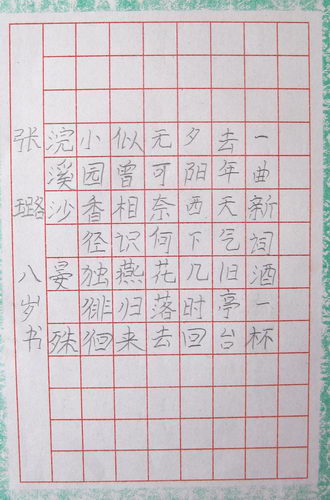 一曲新词酒一杯
去年天气旧亭台
夕阳西下几时回
无可奈何花落去
似曾相识燕归来
小园香径独徘徊
浣溪沙 晏殊
张璐 八岁书